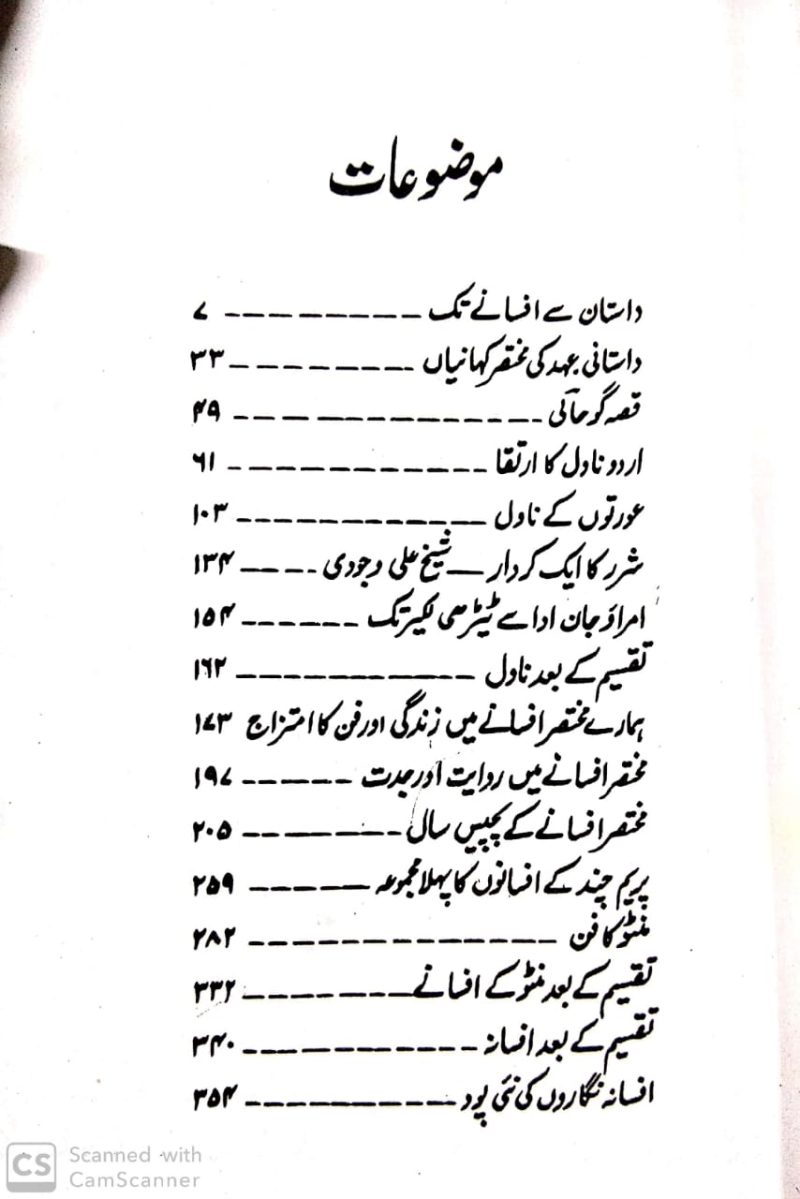 موضوعات
داستان سے افسانے تک ـ ـ ـ ـ ـ ـ ـ ـ ـ ۷
داستانی عہد کی مختصر کہانیاں ـ ـ ـ ـ ـ ـ ـ ـ ـ ۳۳
قصہ گو حالی ـ ـ ـ ـ ـ ـ ـ ـ ـ ـ ـ ـ ـ ـ ۴۹
اردو ناول کا ارتقا ـ ـ ـ ـ ـ ـ ـ ـ ـ ـ ـ ـ ۶۱
عورتوں کے ناول ـ ـ ـ ـ ـ ـ ـ ـ ـ ـ ـ ۱۰۳
شرر کا ایک کردار ــ شیخ علی وجودی ـ ـ ـ ـ ـ ۱۳۴
امراؤ جان ادا سے ٹیڑھی لکیر تک ـ ـ ـ ـ ـ ـ ۱۵۴
تقسیم کے بعد ناول ـ ـ ـ ـ ـ ـ ـ ـ ـ ـ ـ ۱۶۲
ہمارے مختصر افسانے میں زندگی اور فن کا امتزاج ۱۷۳
مختصر افسانے میں روایت اور جدت ـ ـ ـ ـ ـ ـ ۱۹۷
مختصر افسانے کے پچیس سال ـ ـ ـ ـ ـ ـ ـ ـ ۲۰۵
پریم چند کے افسانوں کا پہلا مجموعہ ـ ـ ـ ـ ـ ۲۵۹
منٹو کا فن ـ ـ ـ ـ ـ ـ ـ ـ ـ ـ ـ ـ ـ ـ ۲۸۲
تقسیم کے بعد منٹو کے افسانے ـ ـ ـ ـ ـ ـ ـ ۳۳۲
تقسیم کے بعد افسانہ ـ ـ ـ ـ ـ ـ ـ ـ ـ ـ ۳۴۰
افسانہ نگاروں کی نئی پود ـ ـ ـ ـ ـ ـ ـ ـ ـ ۳۵۴
CS Scanned with
CamScanner